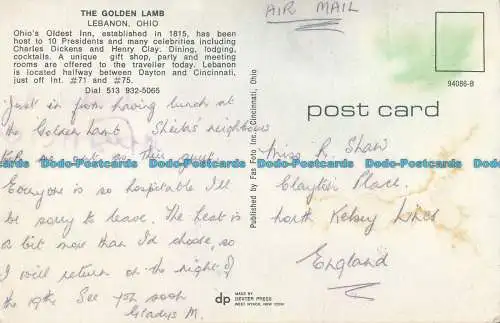 THE GOLDEN LAMB
LEBANON, OHIO
Ohio's Oldest Inn, established in 1815, has been
host to 10 Presidents and many celebrities including
Charles Dickens and Henry Clay. Dining, lodging,
cocktails. A unique gift shop, party and meeting
rooms are offered to the traveller today. Lebanon
is located halfway between Dayton and Cincinnati,
just off Int. #71 and #75.
Dial 513 932-5065
Just in from having lunch at
the Golden Lamb Sheila's neighbours
me out as their guest.
Everyone is so hospitable I'll
be sorry to leave. The heat is
a bit more than I'd choose, so
I will return on the night of
the 19th. See you soon
Gladys M.
Published by Fas Foto Inc., Cincinnati, Ohio
AIR MAIL
94086-B
post card
Miss R. Shaw
Clayton Place.
North Kelsey Lincs
England
dp MADE BY
DEXTER PRESS
WEST NYACK, NEW YORK